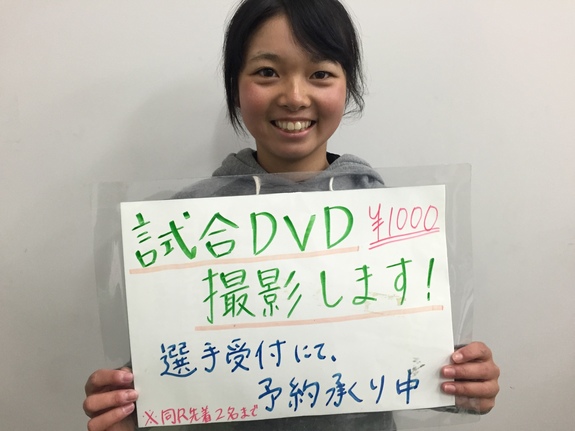 試合DVD ¥1000
撮影します!
選手受付にて、
予約承り中
※同R先着2名まで